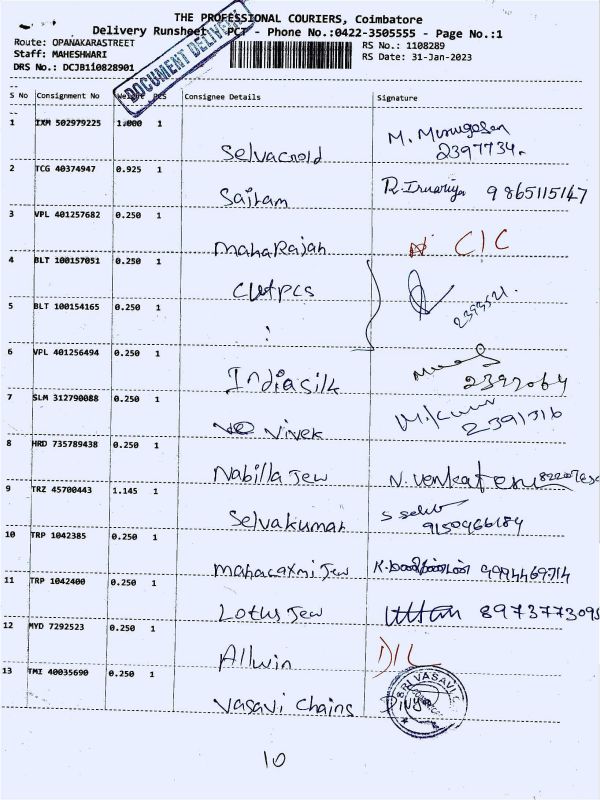 THE PROFESSIONAL COURIERS, Coimbatore
Delivery Runsheet PCT - Phone No.:0422-3505555 - Page No.:1
Route: OPANAKARASTREET
Staff: MAHESHWARI
DRS No.: DCJB110828901
DOCUMENT DELIVERY
RS No.: 1108289
RS Date: 31-Jan-2023
S No Consignment No Weight PCS Consignee Details Signature
1 IXM 502979225 1.000 1
Selvagold M. Murugesan
2397734
2 TCG 40374947 0.925 1
Sairam R. 9865115147
3 VPL 401257682 0.250 1
MahaRajah N C/C
4 BLT 100157051 0.250 1
Cutpcs
5 BLT 100154165 0.250 1
6 VPL 401256494 0.250 1
India silk
7 SLM 312790088 0.250 1
Vivek 2391316
8 HRD 735789438 0.250 1
Nabilla Jew N. Venkatesu
9 TRZ 45700443 1.145 1
Selvakumar
9150466184
10 TRP 1042385 0.250 1
Mahalaxmi Jew
11 TRP 1042400 0.250 1
Lotus Jew 8973773095
12 MYD 7292523 0.250 1
Allwin D/L
13 TMI 40035690 0.250 1
Vasavi Chains SRI VASAVI
10